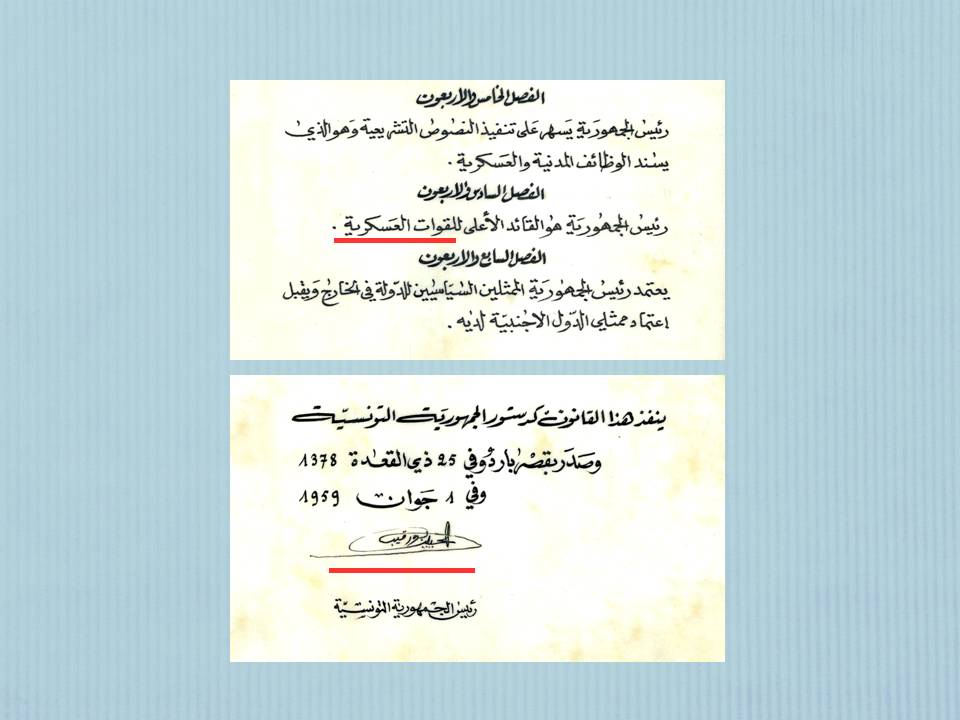 الفصل الخامس والاربعون
رئيس الجمهورية يسهر على تنفيذ النصوص التشريعية وهو الذي
يسند الوظائف المدنية والعسكرية .
الفصل السادس والاربعون
رئيس الجمهورية هو القائد الأعلى للقوات العسكرية .
الفصل السابع والاربعون
يعتمد رئيس الجمهورية الممثلين السياسيين للدولة في الخارج ويقبل
اعتماد ممثلي الدول الاجنبية لديه .
ينفذ هذا القانون كدستور الجمهورية التونسية
وصدر بقصر باردو في 25 ذي القعدة 1378
وفي 1 جوان 1959
الحبيب بورقيبة
رئيس الجمهورية التونسية